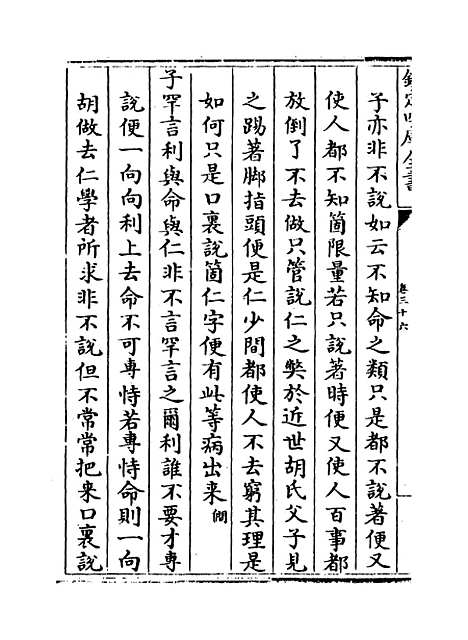 欽定四庫全書
卷三十六
子亦非不說如云不知命之類只是都不說著便又
使人都不知箇限量若只說著時便又使人百事都
放倒了不去做只管說仁之獘於近世胡氏父子見
之踢著脚指頭便是仁少間都使人不去窮其理是
如何只是口裏說箇仁字便有此等病出來 僴
子罕言利與命與仁非不言罕言之爾利誰不要才專
說便一向向利上去命不可專恃若專恃命則一向
胡做去仁學者所求非不說但不常常把来口裏說